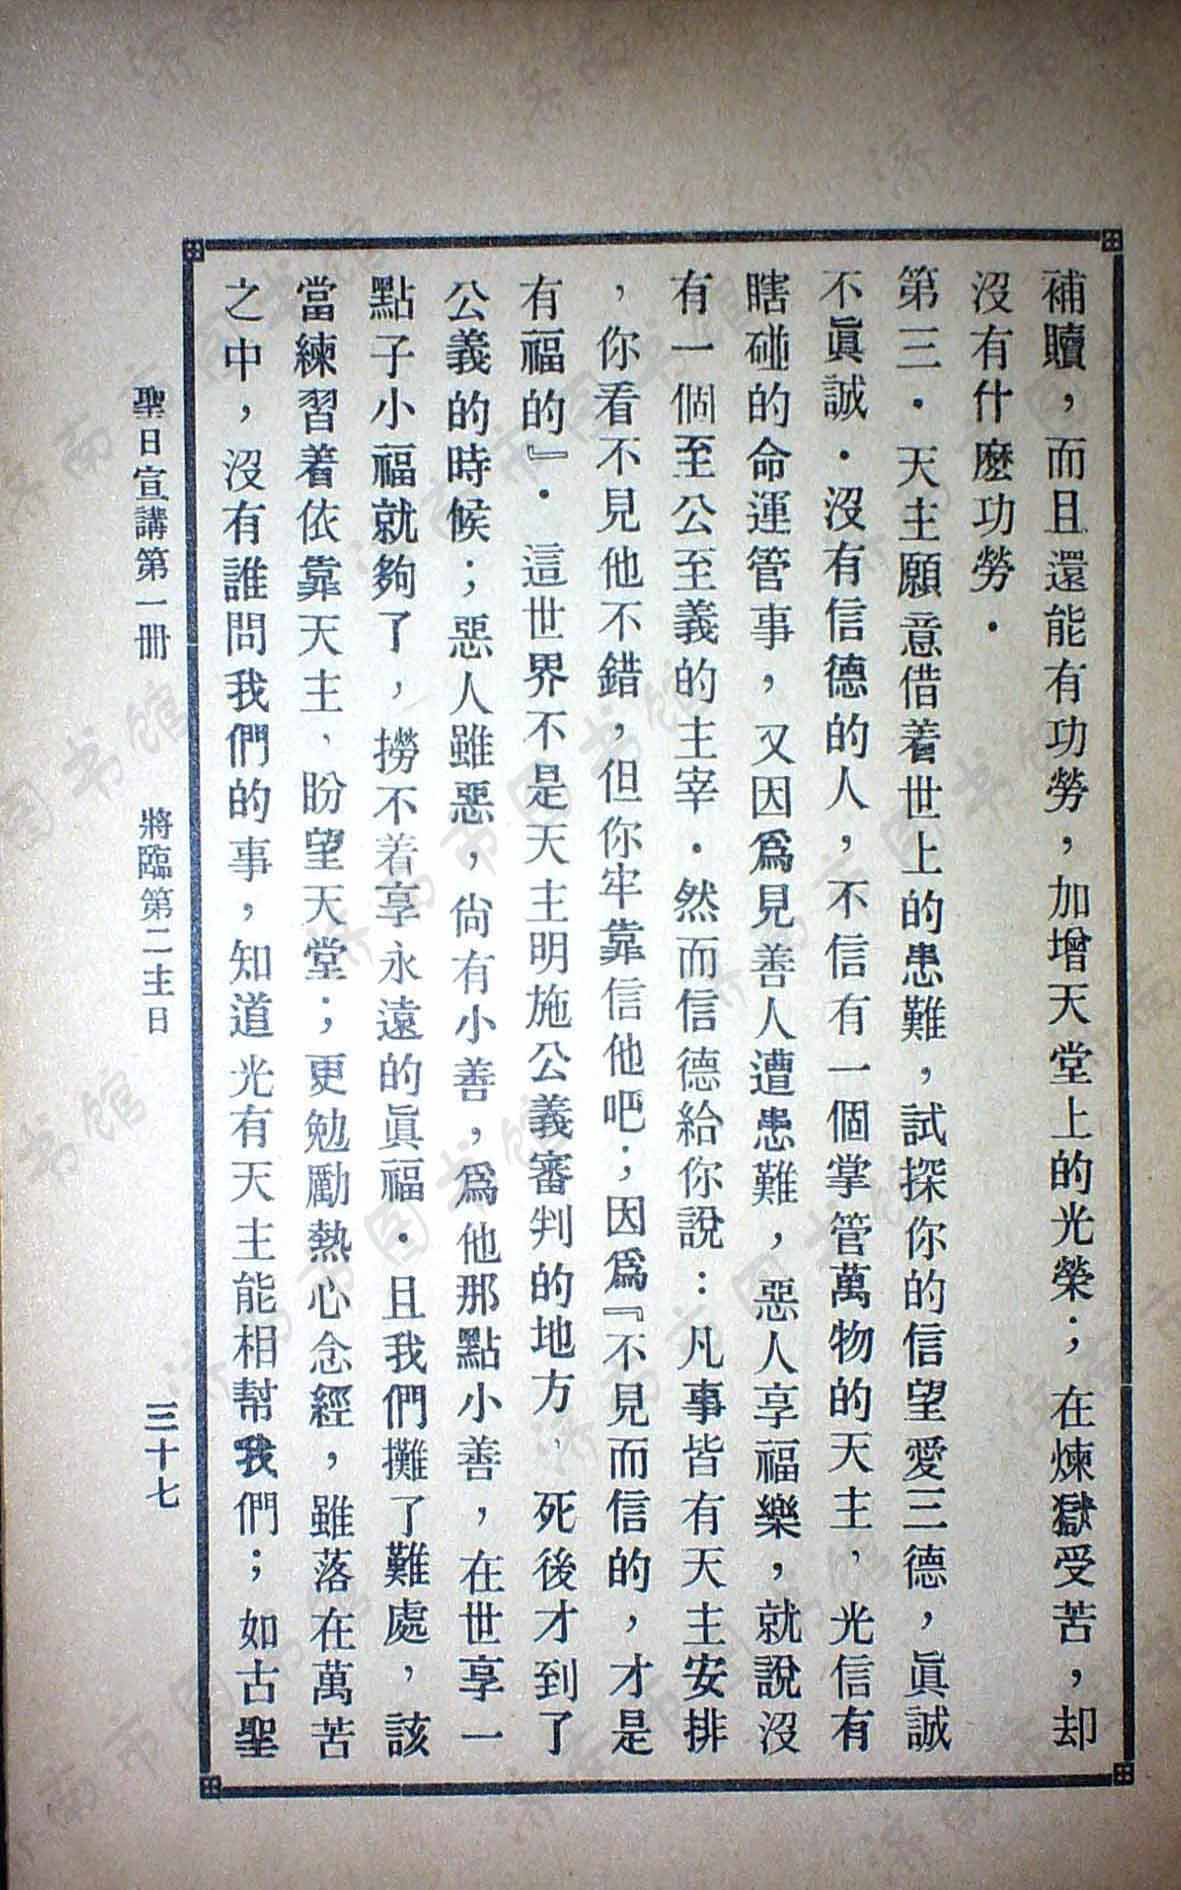 補贖，而且還能有功勞，加增天堂上的光榮；在煉獄受苦，却
沒有什麽功勞．
第三．天主願意借着世上的患難，試探你的信望愛三德，眞誠
不眞誠．沒有信德的人，不信有一個掌管萬物的天主，光信有
瞎碰的命運管事，又因爲見善人遭患難，惡人享福樂，就說沒
有一個至公至義的主宰．然而信德給你說：凡事皆有天主安排
，你看不見他不錯，但你牢靠信他吧；因爲『不見而信的，才是
有福的』．這世界不是天主明施公義審判的地方，死後才到了
公義的時候；惡人雖惡，尙有小善，爲他那點小善，在世享一
點子小福就夠了，撈不着享永遠的眞福．且我們攤了難處，該
當練習着依靠天主，盼望天堂；更勉勵熱心念經，雖落在萬苦
之中，沒有誰問我們的事，知道光有天主能相幫我們；如古聖
聖日宣講第一冊　將臨第二主日　三十七
济南市图书馆